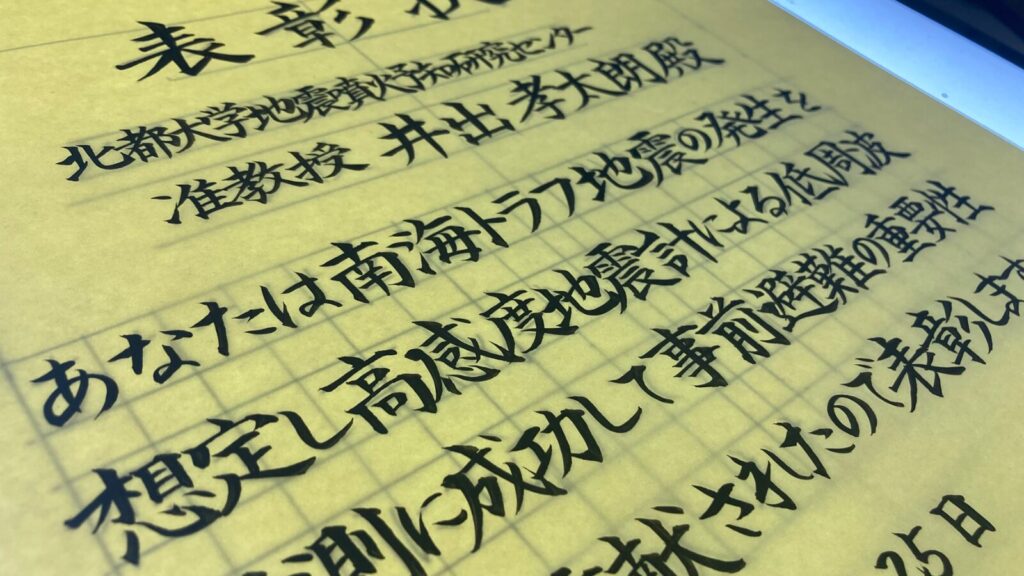 表彰状
北都大学地震噴火予知研究センター
准教授 井出孝太朗殿
あなたは南海トラフ地震の発生を
想定し高感度地震計による低周波
測に成功して事前避難の重要性
献されたので表彰します
25日